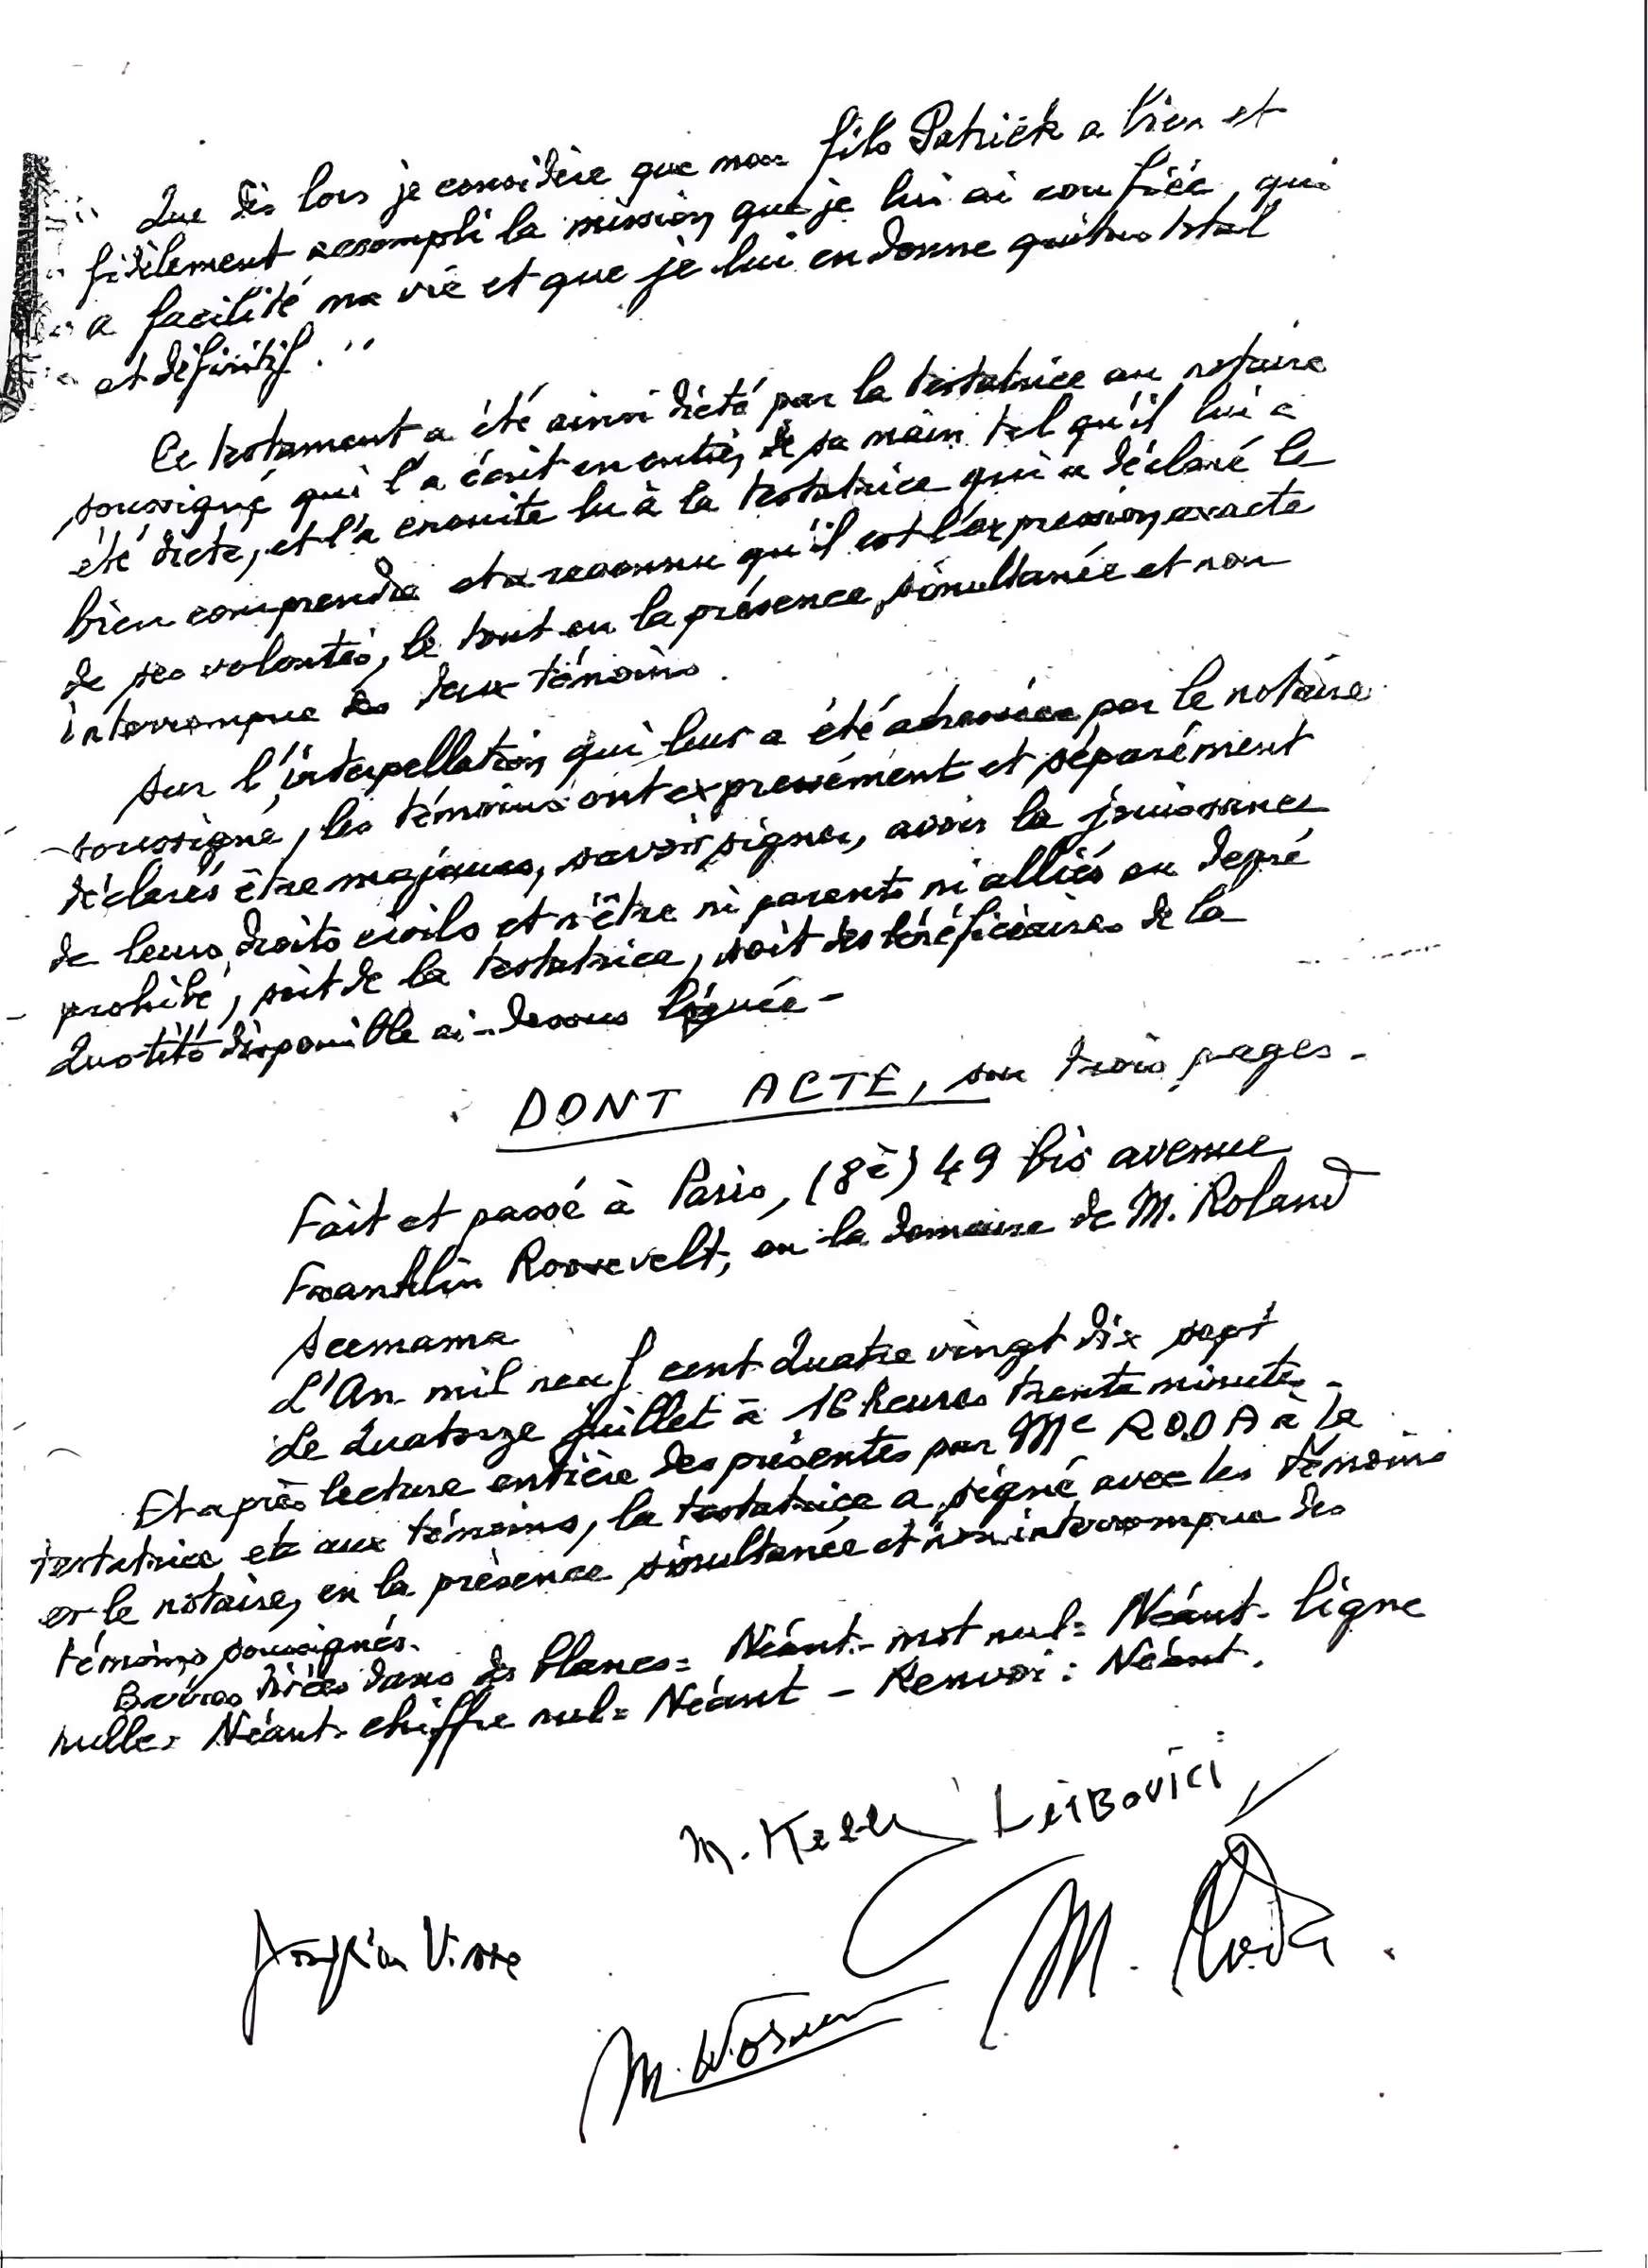 Que dès lors je considère que mon fils Patrick a bien et
fidèlement accompli la mission que je lui ai confiée, qui
a facilité ma vie et que je lui en donne quitus total
et définitif. "
Ce testament a été ainsi dicté par la testatrice au notaire
soussigné qui l'a écrit en entier de sa main tel qu'il lui a
été dicté, et l'a ensuite lu à la testatrice qui a déclaré le
bien comprendre et a reconnu qu'il est l'expression exacte
de ses volontés, le tout en la présence simultanée et non
interrompue des deux témoins.
Sur l'interpellation qui leur a été adressée par le notaire
soussigné, les témoins ont expressément et séparément
déclarés être majeurs, savoir signer, avoir la jouissance
de leurs droits civils et n'être ni parents ni alliés au degré
prohibé, soit de la testatrice, soit des bénéficiaires de la
Quotité disponible ci-dessus léguée -
DONT ACTE, sur trois pages -
Fait et passé à Paris, (8è) 49 bis avenue
Franklin Roosevelt, en la demeure de M. Roland
Seemama
L'An mil neuf cent Quatre vingt dix sept
Le Quatorze Juillet à 16 heures trente minutes -
Et après lecture entière des présentes par Me RODA à la
testatrice et aux témoins, la testatrice a signé avec les témoins
et le notaire, en la présence simultanée et non interrompue des
témoins soussignés.
Barres tirées dans des blancs = Néant - mot nul = Néant - ligne
nulle = Néant - chiffre nul = Néant - Renvoi : Néant.
M. Leibovici
M. Roda
M.